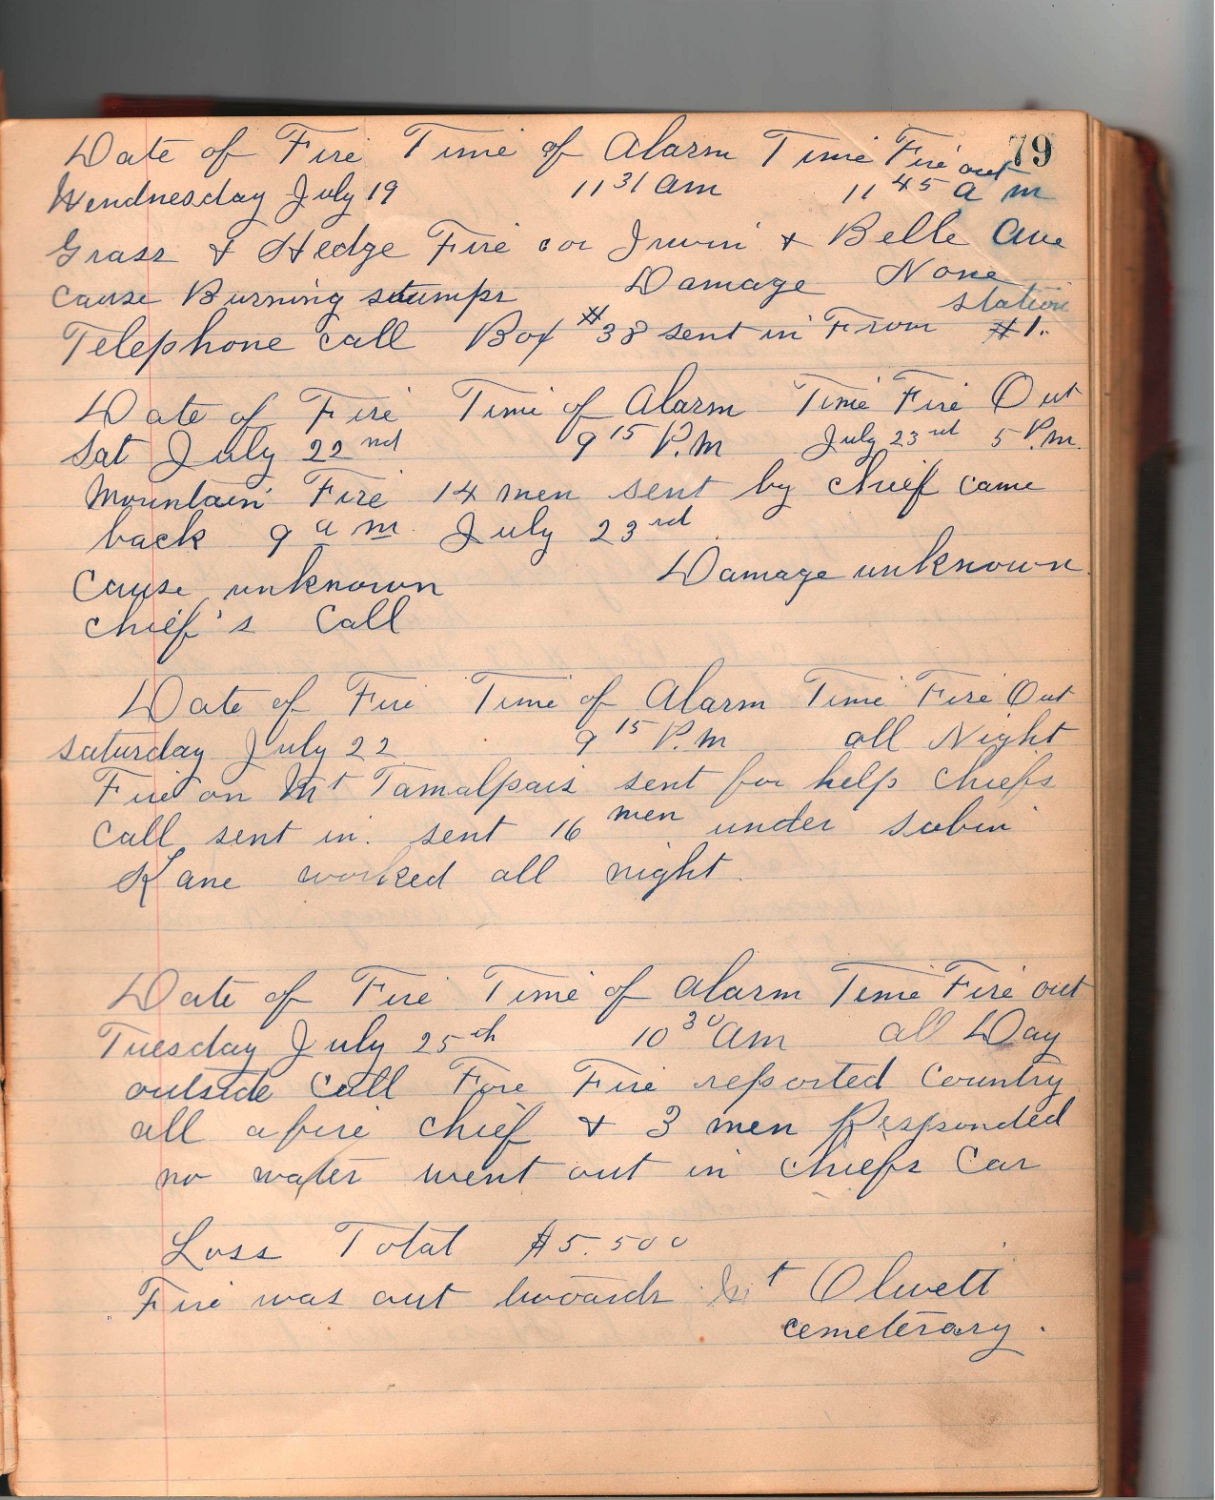 79
Date of Fire Time of Alarm Time Fire out
Wendnesday July 19 11 31 am 11 45 a m
Grass & Hedge Fire cor Irwin & Belle Ave
Cause Burning stumps Damage None
Telephone call Box #38 sent in From station #1.
Date of Fire Time of Alarm Time Fire Out
Sat July 22nd 9 15 P.M July 23rd 5 P.m.
Mountain Fire 14 men sent by Chief came
back 9 a m. July 23rd
Cause unknown Damage unknown.
Chief's Call
Date of Fire Time of Alarm Time Fire Out
Saturday July 22 9 15 P.M all Night
Fire on Mt Tamalpais sent for help Chiefs
Call sent in. sent 16 men under Sabin
Kane worked all night.
Date of Fire Time of Alarm Time Fire out
Tuesday July 25th 10 30 am all Day
outside Call Fore Fire reported Country
all afire Chief & 3 men Responded
no water went out in Chiefs Car
Loss Total $5.500
Fire was out Mt Olivett
cemeterary.